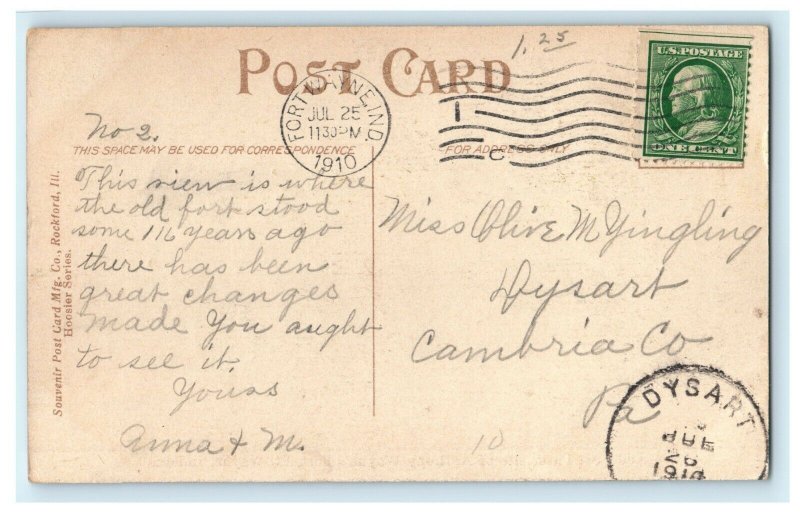 1.25
POST CARD
U.S. POSTAGE
ONE CENT
FORT WAYNE, IND
JUL 25
1130PM
1910
No 2.
THIS SPACE MAY BE USED FOR CORRESPONDENCE
FOR ADDRESS ONLY
This view is where
the old fort stood
some 116 years ago
there has been
great changes
made You aught
to see it.
Yours
Anna & M.
Souvenir Post Card Mfg. Co., Rockford, Ill.
Hoosier Series.
Miss Olive M Yingling
Dysart
Cambria Co
Pa
10
DYSART
26
1910